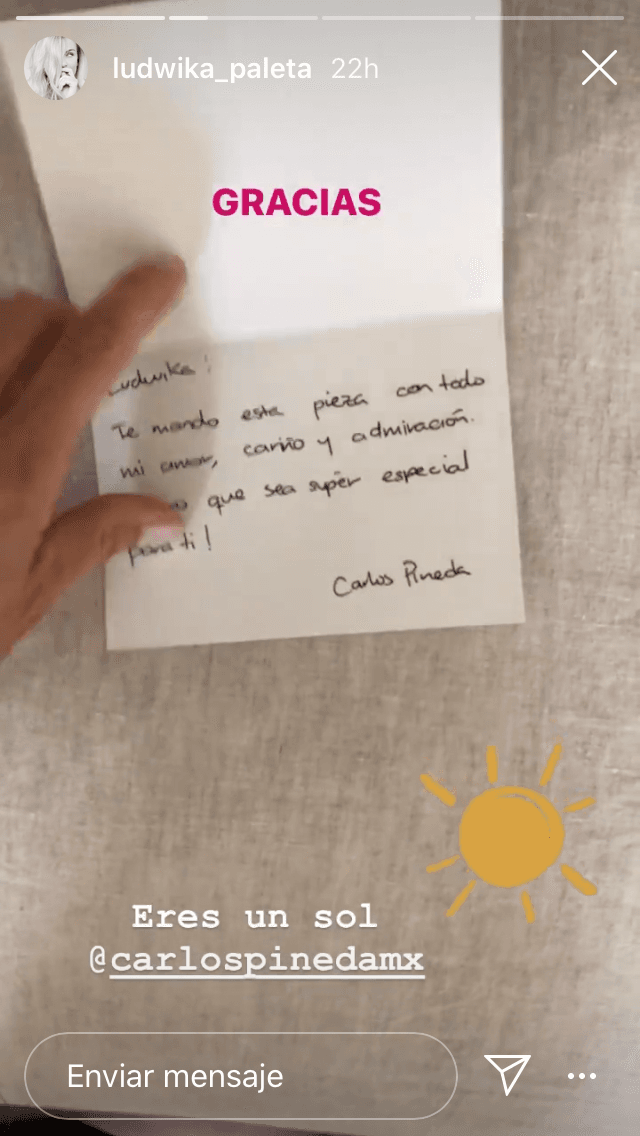 ludwika_paleta 22h
GRACIAS
Ludwika!
Te mando esta pieza con todo
mi amor, cariño y admiración.
que sea súper especial
para ti!
Carlos Pineda
Eres un sol
@carlospinedamx
Enviar mensaje